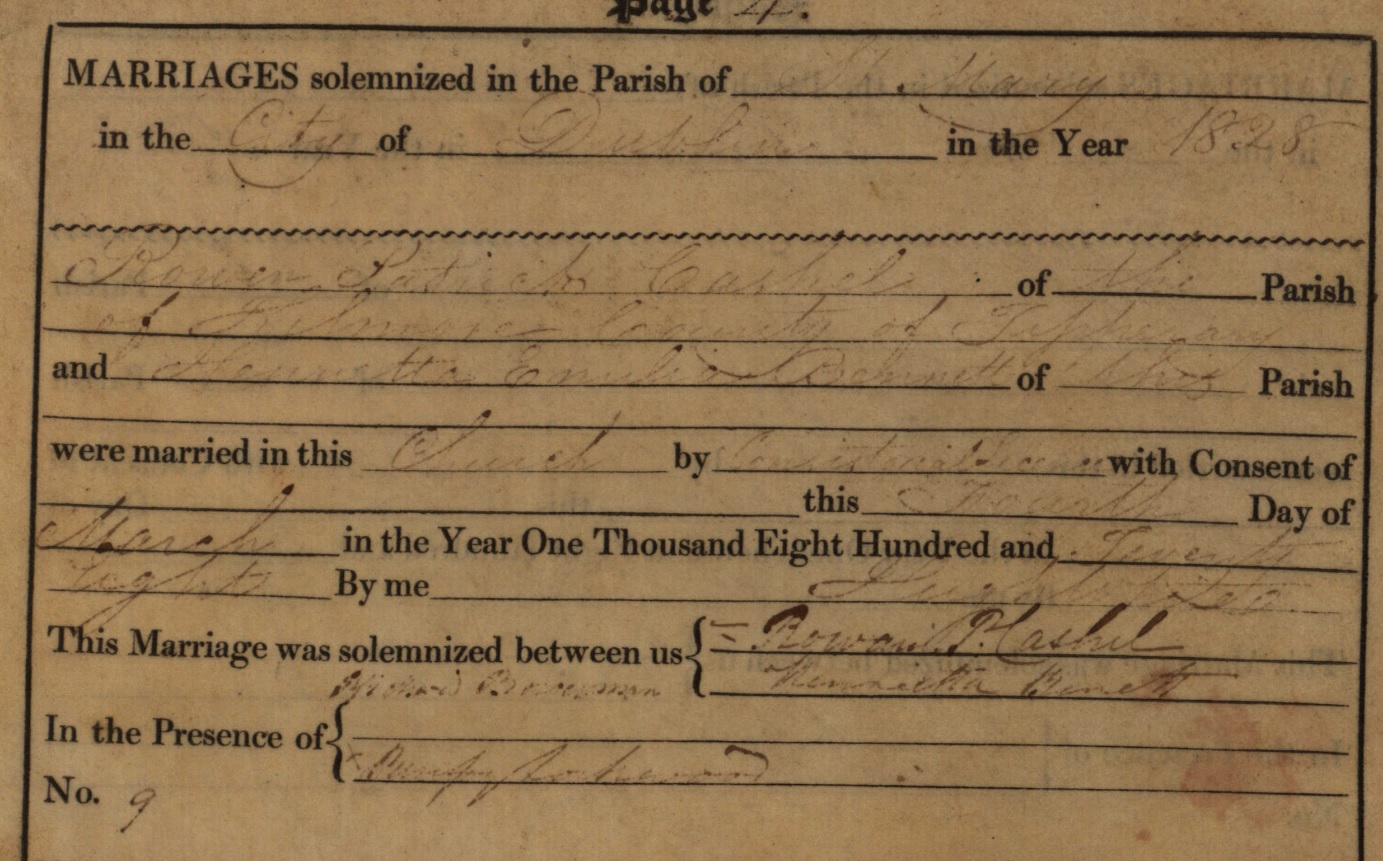 Page 4.
MARRIAGES solemnized in the Parish of St. Mary
in the City of Dublin in the Year 1828
Rowen Patrick Cashel of the Parish
of Kilmore County of Tipperary
and Henrietta Emilia Bennett of this Parish
were married in this Church by Consistorial License with Consent of
this Fourth Day of
March in the Year One Thousand Eight Hundred and Twenty
Eight By me
This Marriage was solemnized between us { Rowan P. Cashel
Richard Bowerman Henrietta Benett
In the Presence of {
No. 9